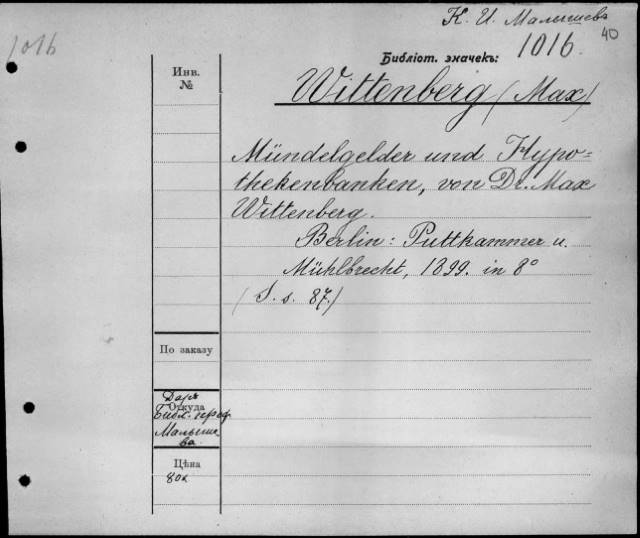 К. И. Малышевъ
1016
40
Библіот. значекъ: 1016.
Инв.
№
Wittenberg (Max)
Mündelgelder und Hypo=
thekenbanken, von Dr. Max
Wittenberg.
Berlin: Puttkammer u.
Mühlbrecht, 1899. in 8°
(S. s. 87.)
По заказу
Даръ
Откуда
Библ. проф.
Малыше-
ва.
Цѣна
80к